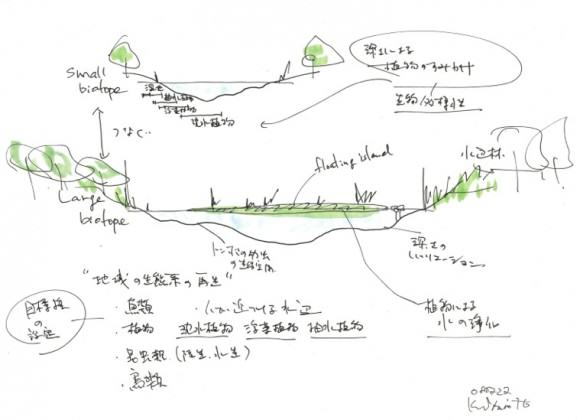 small
biotope
深さによる
植物のすみわけ
生物の多様性
湿生
抽水植物
浮葉植物
沈水植物
つなぐ
水辺林
floating island
Large
biotope
トンボの幼虫
の生育空間
深さの
バリエーション
"地域の生態系の再生"
植物による
水の浄化
目標種
の設定
・魚類
人が近づける水辺
・植物 沈水植物 浮葉植物 抽水植物
・昆虫類 (陸生、水生)
・鳥類